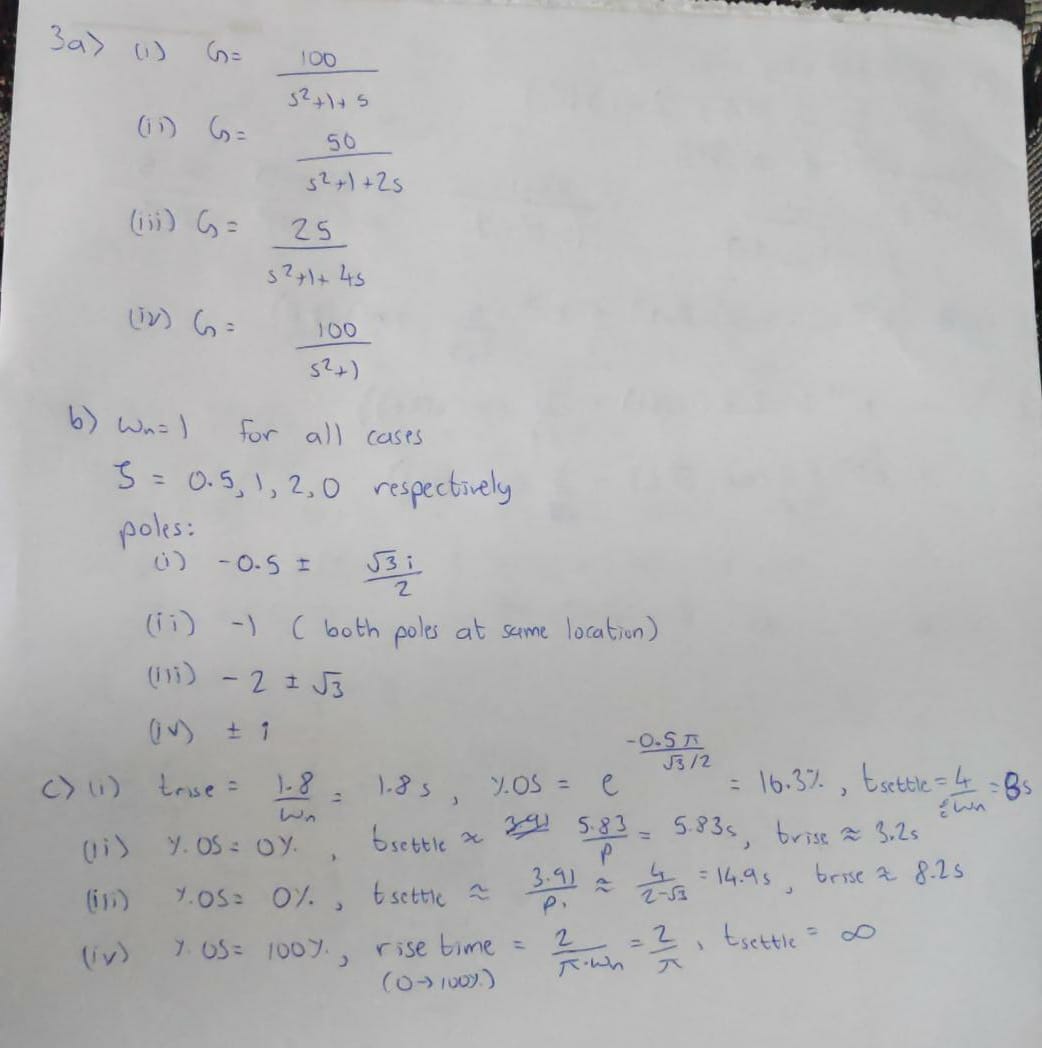 3a> (i) G = 100 / (s²+1+s)
(ii) G = 50 / (s²+1+2s)
(iii) G = 25 / (s²+1+4s)
(iv) G = 100 / (s²+1)
b) ωn=1 for all cases
ζ = 0.5, 1, 2, 0 respectively
poles:
(i) -0.5 ± √3 i / 2
(ii) -1 (both poles at same location)
(iii) -2 ± √3
(iv) ± i
c> (i) trise = 1.8/ωn = 1.8s, %OS = e^(-0.5π / (√3/2)) = 16.3%, tsettle = 4/ξωn = 8s
(ii) %OS = 0%, tsettle ≈ 5.83/p = 5.83s, trise ≈ 3.2s
(iii) %OS = 0%, tsettle ≈ 3.91/p₁ ≈ 4/(2-√3) = 14.9s, trise ≈ 8.2s
(iv) %OS = 100%, rise time = 2/(π·ωn) = 2/π, tsettle = ∞
(0→100%)